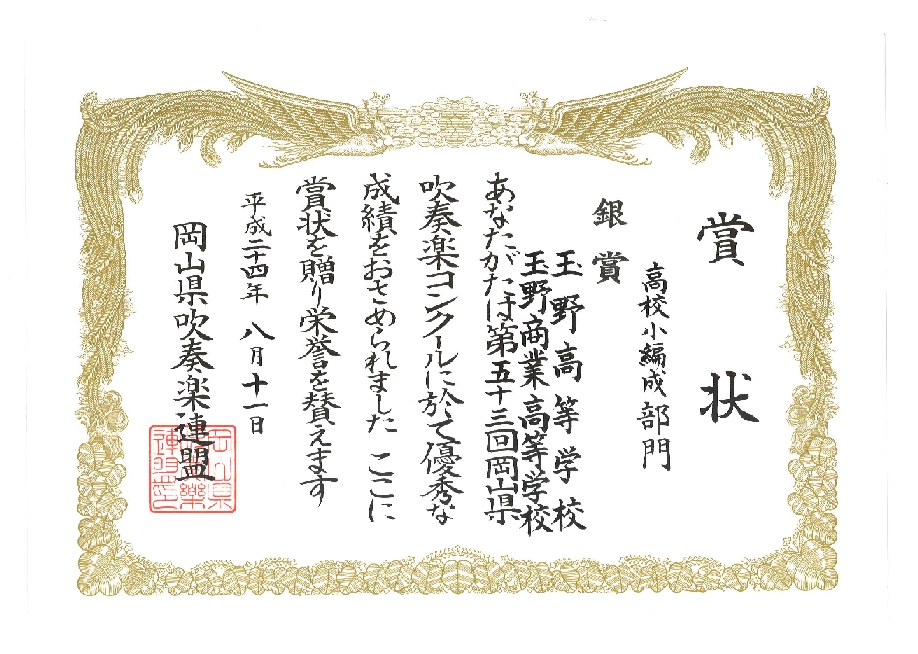 賞状
高校小編成部門
銀賞
玉野高等学校
玉野商業高等学校
あなたがたは第五十三回岡山県
吹奏楽コンクールに於て優秀な
成績をおさめられました ここに
賞状を贈り栄誉を賛えます
平成二十四年 八月十一日
岡山県吹奏楽連盟